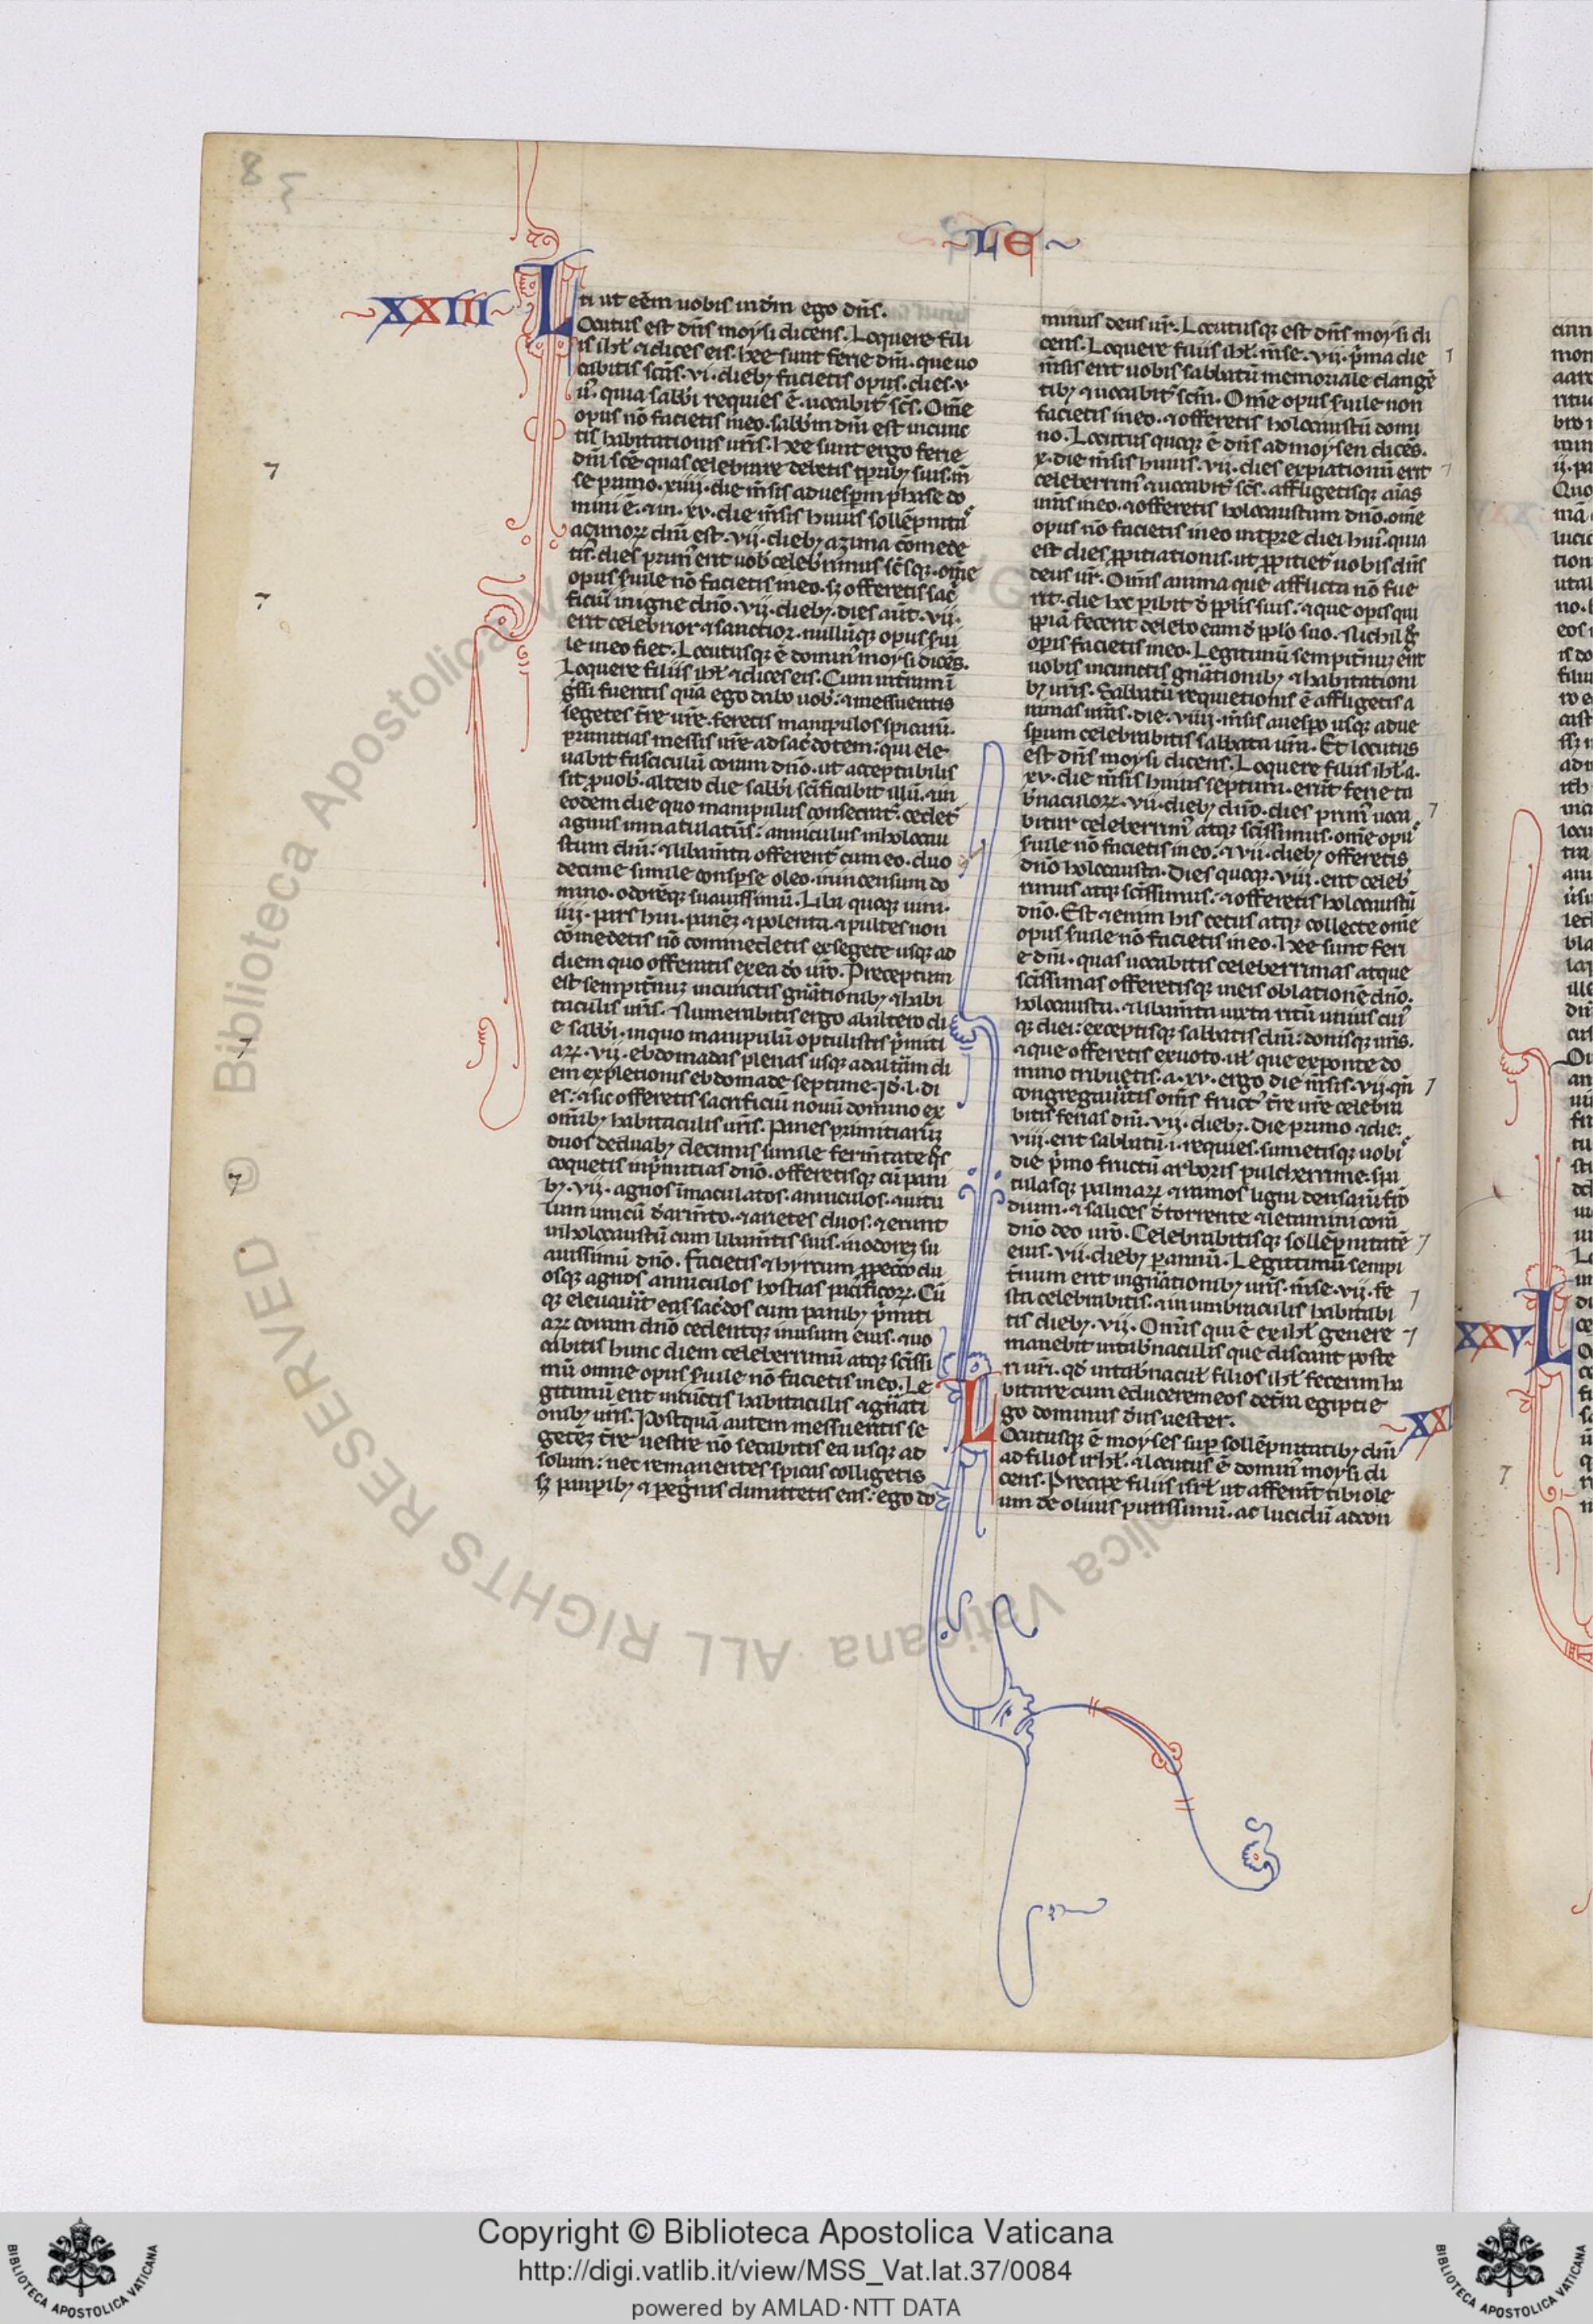 LE
XXIII
ti ut eēm uobis in dm̄ ego dn̄s.
Locutus est dn̄s moysi dicens. Loquere fili
is isrł ⁊ dices eis. hee sunt ferie dn̄i. que uo
cabitis scās. vi. dieb; facietis opus. dies. v
ii. quia sabbi requies ē. uocabit᷑ scs̄. Om̄e
opus nō facietis in eo. sabbm̄ dn̄i est in cunc
tis habitationis ur̄is. hee sunt ergo ferie
dn̄i scē quas celebrare debetis tꝑrib; suis. m̄
se primo. xiiii. die m̄sis ad uesꝑm phase do
mini ē. ⁊ in. xv. die m̄sis huius sollēpnita
azimoꝝ dn̄i est. vii. dieb; azima cōmede
tis. dies prim᷒ erit uob᷒ celeb̄rimus scs̄q;. om̄e
opus ẜuile nō facietis in eo. sꝫ offeretis sac᷒
ficiū in igne dn̄o. vii. dieb;. dies aūt. vii.
erit celebrior ⁊ sanctior. nullūq; opus ẜui
le in eo fiet. Locutusq; ē domin᷒ moysi dicēs.
Loquere filiis isrł ⁊ dices eis. Cum int̄ram ī
g̓ssi fueritis quā ego dabo uob᷒. ⁊ messueritis
segetes t̄re ur̄e. feretis manipulos spicaꝝ.
primitias messis ur̄e ad sac̓dotem: qui ele
uabit fasciculū coram dn̄o. ut acceptabilis
sit ꝓ uob᷒. altero die sabbi sc̄ificabit illū. ⁊ in
eodem die quo manipulus consecrat᷑. cedet᷑
agnus inmaculatus: anniculus in holocau
stum dn̄i. ⁊ libam̄ta offerent᷑ cum eo. duo
decime simile consꝑse oleo. in incensum do
mino. odorēq; suauissimū. Liba quoq; uini.
iiii. pars hin. panē; ⁊ polenta. ⁊ pultes non
cōmedetis nō commedetis ex segete usq; ad
diem quo offeratis ex ea dō ur̄o. Preceptum
est sempit̄nuꝫ in cunctis gn̄ationib; ⁊ habi
taculis ur̄is. Numerabitis ergo ab altero di
e sabbi. in quo manipulū optulistis p̄miti
aꝝ. vii. ebdomadas plenas usq; ad altam di
em expletionis ebdomade septime. id ē. l. di
es: ⁊ sic offeretis sacrificiū nouū domino ex
om̄ib; habitaculis ur̄is. Panes primitiaruꝫ
duos de duab; decimis simile ferm̄tate q̄s
coquetis in p̄mitias dn̄o. offeretisq; cū pani
b;. vii. agnos īmaculatos. anniculos. ⁊ uitu
lum unicū d̄ arm̄to. ⁊ arietes duos. ⁊ erunt
in holocaustū cum libam̄tis suis. in odoreꝫ su
auissimū dn̄o. Facietis ⁊ hyrcum ꝓ pecc̄o du
osq; agnos anniculos hostias pacificoꝝ. Cū
q; eleuau̅it eas sac̓dos cum panib; p̄miti
aꝝ coram dn̄o cedentq; in usum eius. ⁊ uo
cabitis hunc diem celeberrimū atq; scīssi
mū. omne opus ẜuile nō facietis in eo. Le
gitimū erit in cūctis habitaculis ⁊ gn̄ati
onib; ur̄is. Postquā autem messueritis se
geteꝫ t̄re uestre nō secabitis ea usq; ad
solum: nec remanentes spicas colligetis
sꝫ pauꝑib; ⁊ ꝑeg̓nis dimittetis eas: ego do
minus deus ur̄. Locutusq; est dn̄s moysi di
cens. Loquere filiis isrł. m̄se. vii. p̄ma die
m̄sis erit uobis sabbatū memoriale clangē
tib; ⁊ uocabit᷑ scm̄. Om̄e opus ẜuile non
facietis in eo. ⁊ offeretis holocaustū domi
no. Locutus quoq; ē dn̄s ad moysen dicēs.
x. die m̄sis huius. vii. dies expiationū erit
celeberrim᷒ ⁊ uocabit᷑ scs̄. affligetisq; aīas
ur̄as in eo. ⁊ offeretis holocaustum dn̄o. om̄e
opus nō facietis in eo in tꝑre diei hui᷒. quia
est dies ꝓpitiationis. ut ꝓpitiet᷑ uobis dn̄s
deus ur̄. Om̄is anima que afflicta nō fue
rit. die hec ꝑibit d̄ ppl̄is suis: ⁊ que oꝑis qui
ppiā fecerit delebo eam d̄ ppl̄o suo. Nichil g̓
oꝑis facietis in eo. Legitimū sempit̄nuꝫ erit
uobis in cunctis gn̄ationib; ⁊ habitationi
b; ur̄is. Sabbatū requietionis ē affligetis a
nimas ur̄as. die. viiii. m̄sis a uesꝑo usq; ad ue
sꝑum celebrabitis sabbata ur̄a. Et locutus
est dn̄s moysi dicens. Loquere filiis isrł. a.
xv. die m̄sis huius septimi. erūt ferie ta
b̄naculoꝝ. vii. dieb; dn̄o. dies prim᷒ uoca
bitur celeberrim᷒ atq; scīssimus. om̄e opu᷒
ẜuile nō facietis in eo: ⁊ vii. dieb; offeretis
dn̄o holocausta. Dies quoq;. viii. erit celeb᷒
rimus atq; scīssimus: ⁊ offeretis holocaustū
dn̄o. Est ⁊enim his cetus atq; collecte om̄e
opus ẜuile nō facietis in eo. Hee sunt feri
e dn̄i. quas uocabitis celeberrimas atque
scīssimas offeretisq; in eis oblationē dn̄o.
holocausta. ⁊ libam̄ta iuxta ritū unius cui᷒
q; diei: exceptisq; sabbatis dn̄i: donisq; ur̄is.
⁊ que offeretis ex uoto. ut̄ que sponte do
mino tribuetis. a. xv. ergo die m̄sis. vii. qn̄
congregau̅itis om̄s fruct᷒ t̄re ur̄e celebra
bitis ferias dn̄i. vii. dieb;. Die primo ⁊ die.
viii. erit sabbatū. i. requies. sumetisq; uobi᷒
die p̄mo fructū arboris pulcherrime. spa
tulasq; palmaꝝ ⁊ ramos ligni densarū frō
dium. ⁊ salices d̄ torrente ⁊ letamini corā
dn̄o deo ur̄o. Celebrabitisq; sollēpnitatē
eius. vii. dieb; ꝑ annū. Legitimū sempi
t̄num erit in gn̄ationib; ur̄is. m̄se. vii. fe
sta celebrabitis. ⁊ in umbraculis habitabi
tis dieb;. vii. Om̄is qui ē ex isrł genere
manebit in tab̄naculis que discant poste
ri ur̄i. qd̄ in tab̄nacul᷒ filios isrł fecerim ha
bitare cum educerem eos de t̄ra egipti e
go dominus d̄us uester.
XX
Locutusq; ē moyses suꝑ sollēpnitatib; dn̄i
ad filios isrł. ⁊ locutus ē domin᷒ moysi di
cens. Precipe filiis isrł ut afferāt tibi ole
um de oliuis purissimū. ac lucidū ad con
XXV
Copyright © Biblioteca Apostolica Vaticana
http://digi.vatlib.it/view/MSS_Vat.lat.37/0084
powered by AMLAD·NTT DATA
BIBLIOTECA APOSTOLICA VATICANA
BIBLIOTECA APOSTOLICA VATICANA
© Biblioteca Apostolica Vaticana ALL RIGHTS RESERVED